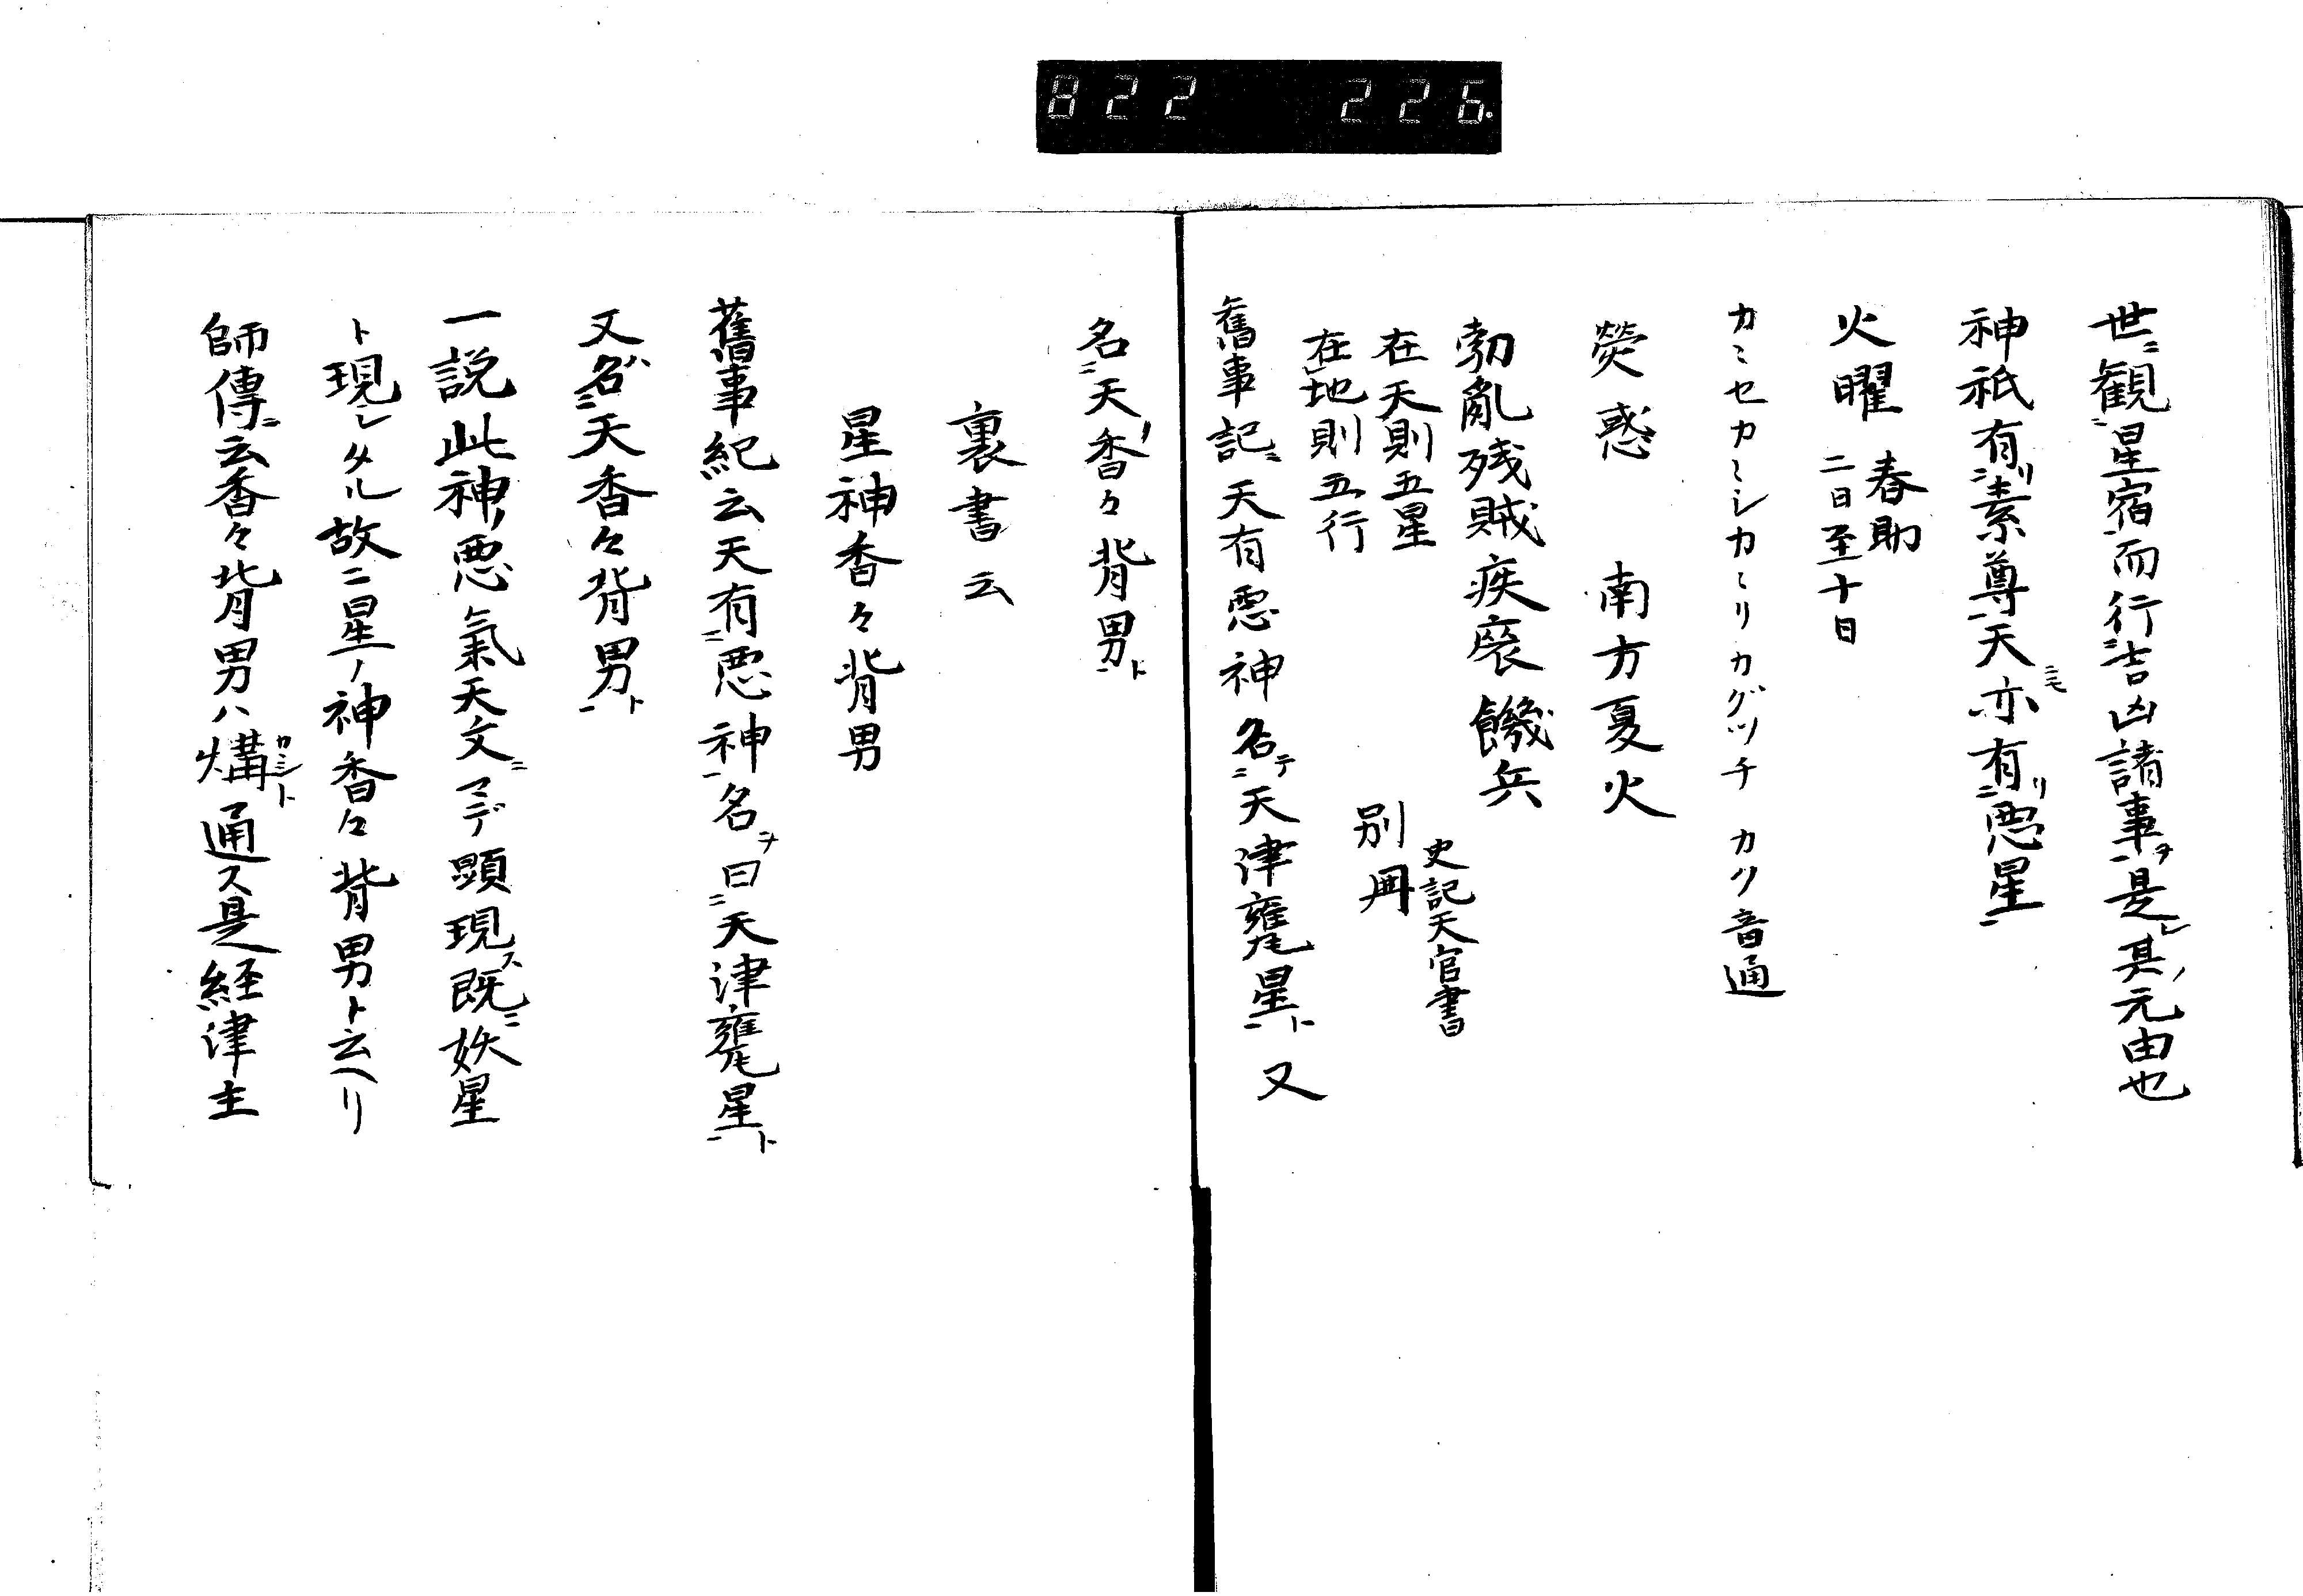 822 226.
世ニ観ニ星宿一而行ニ吉凶諸事ヲ一是レ其ノ元由也
神祇有リニ素尊一天ニモ亦有リニ悪星一
火曜 春助
二日至十日
カミセカミシカミリカグツチ カク音通
熒惑 南方夏火
勃亂残賊疾喪饑兵 史記天官書
在天則五星
在地則五行 別冊
舊事記ニ天有悪神名テニ天津甕星ト一又
名ニ天ノ香々背男ト一
裏書云
星神香々背男
舊事紀云天有ニ悪神一名ヲ曰ニ天津甕星ト一
又名ハニ天香々背男ト一
一説此神ノ悪氣天文ニマデ顕現ス既ニ妖星
ト現レタル故ニ星ノ神香々背男ト云ヘリ
師傳ニ云香々背男ハ燐カミシト通ス是経津主